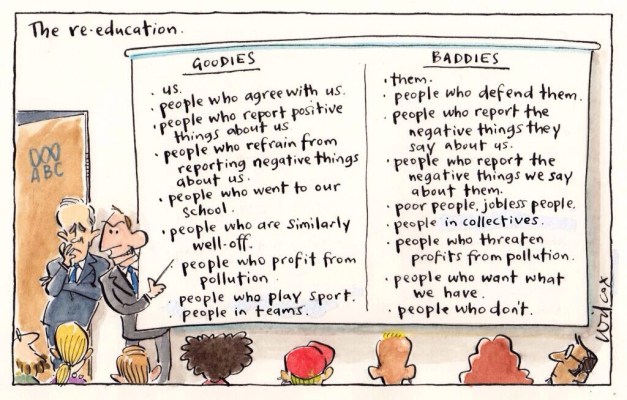 The re-education.
GOODIES
. us.
. people who agree with us.
. people who report positive
things about us
. people who refrain from
reporting negative things
about us.
. people who went to our
school.
. people who are similarly
well-off.
people who profit from
pollution
people who play sport.
people in teams.
BADDIES
. them.
. people who defend them.
. people who report the
negative things they
say about us.
. people who report the
negative things we say
about them.
. poor people, jobless people,
. people in collectives.
. people who threaten
profits from pollution.
. people who want what
we have.
. people who don't.
ABC
Wilcox